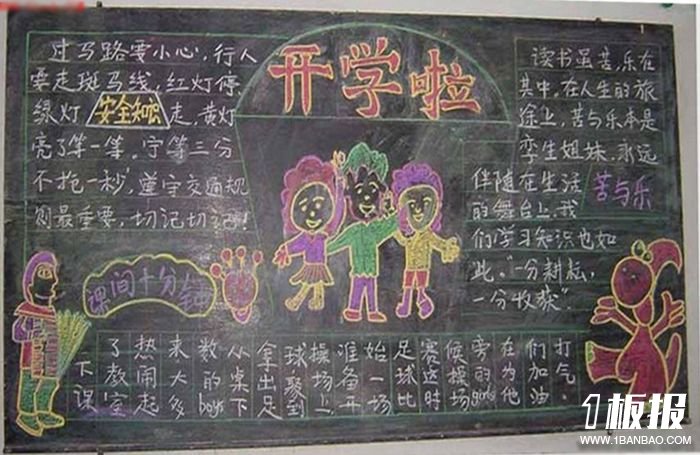 开学啦
过马路要小心，行人
要走斑马线，红灯停，
绿灯走，黄灯
安全知识
亮了等一等。宁等三分
不抢一秒，遵守交通规
则最重要，切记切记！
读书虽苦，乐在
其中，在人生的旅
途上，苦与乐本是
孪生姐妹，永远
伴随在生活
苦与乐
的舞台上，我
们学习知识也如
此。“一分耕耘，
一分收获”。
课间十分钟
下课
了教室
热闹起
来大多
数的boys
从桌下
拿出足
球聚到
操场上
准备开
始一场
足球比
赛这时
候操场
旁的girls
在为他
们加油
打气。
1板报
WWW.1BANBAO.COM